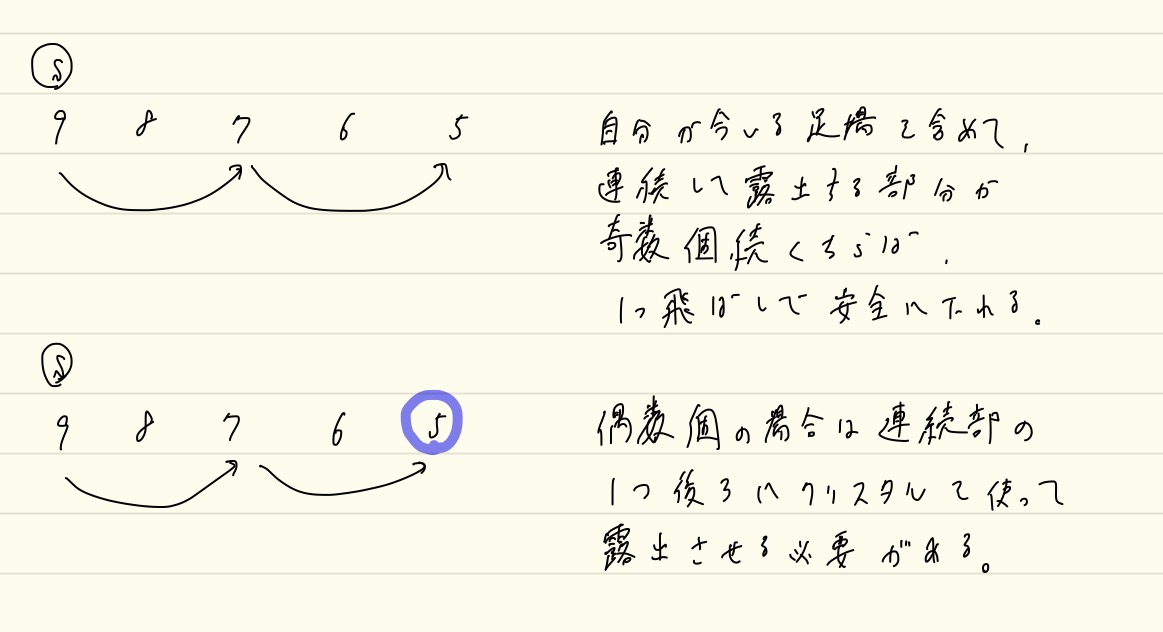 S
9 8 7 6 5
自分が今いる足場を含めて,
連続して露出する部分が
奇数個続くならば,
1つ飛ばしで安全に下れる。
S
9 8 7 6 5
偶数個の場合は連続部の
1つ後ろにクリスタルを使って
露出させる必要がある。